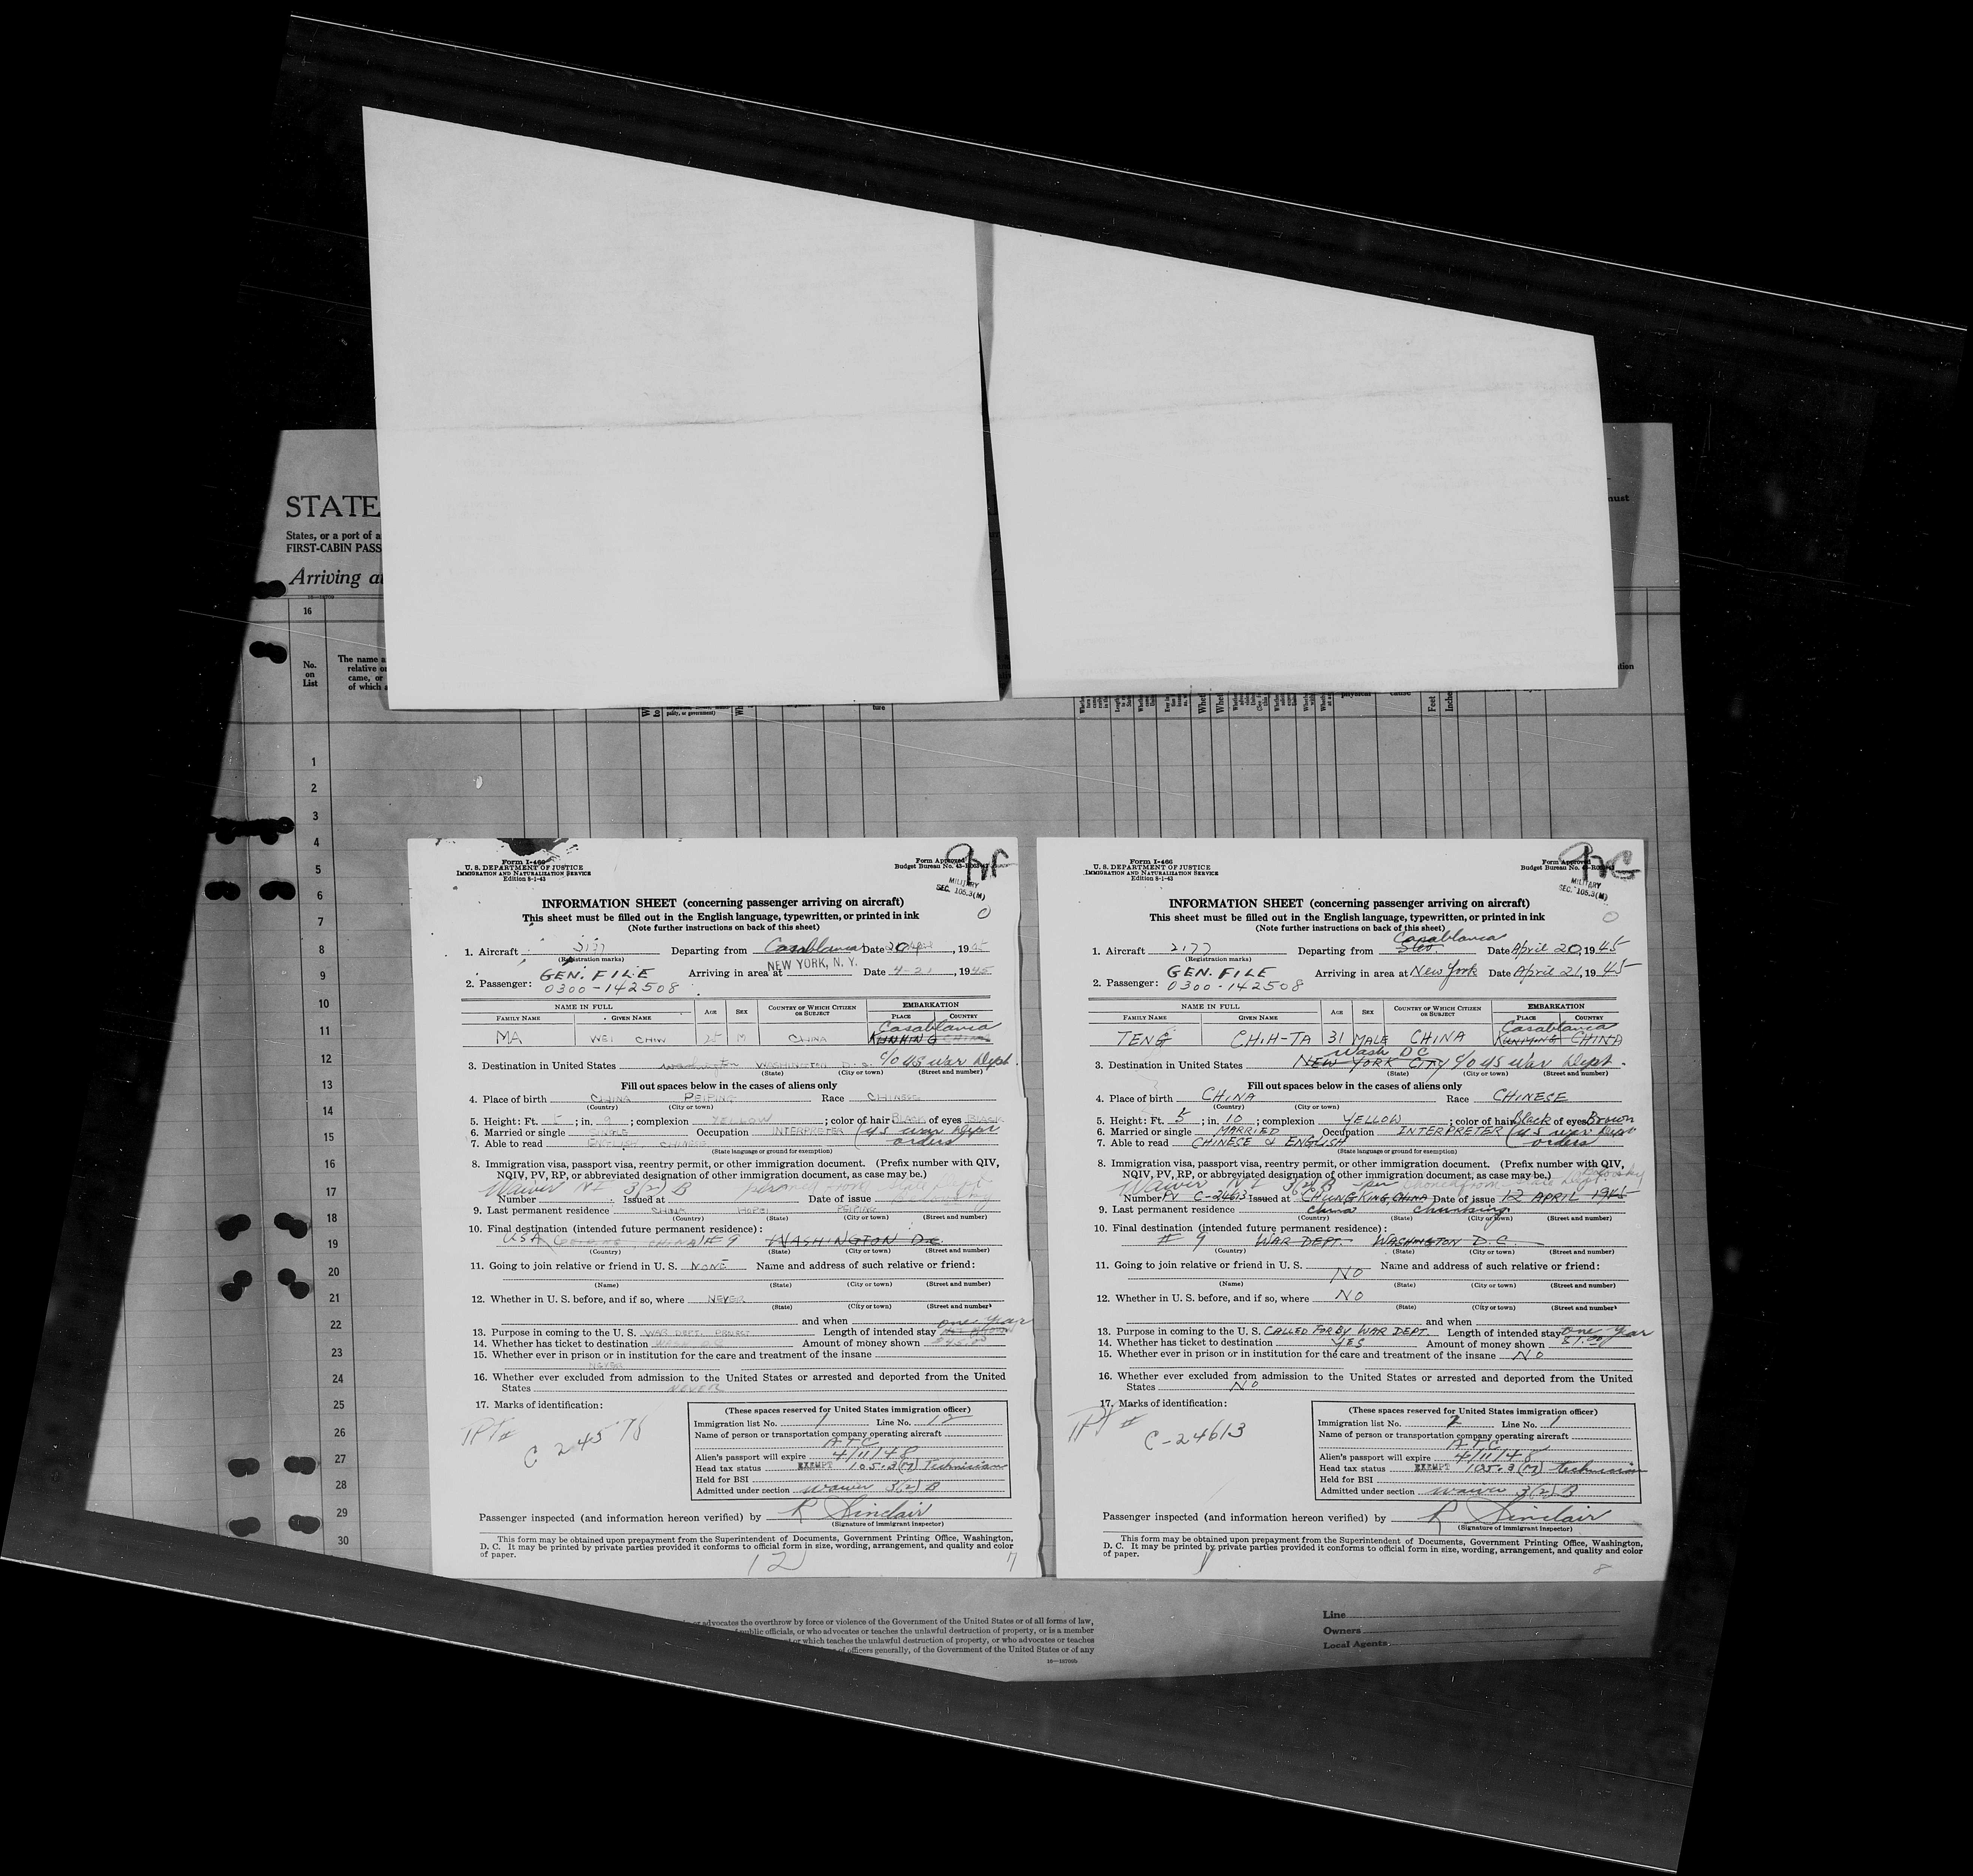 STATE
States, or a port of a
FIRST-CABIN PASS
Arriving at
16—18709
16
No.
on
List
The name a
relative or
came, or
of which a
must
pality, or government)
ture
physical
cause
Feet
Inches
1
2
3
4
5
6
7
8
9
10
11
12
13
14
15
16
17
18
19
20
21
22
23
24
25
26
27
28
29
30
Form I-466
U. S. DEPARTMENT OF JUSTICE
IMMIGRATION AND NATURALIZATION SERVICE
Edition 8-1-43
Form Approved
Budget Bureau No. 43-R063
MILITARY
SEC. 105.3(M)
INFORMATION SHEET (concerning passenger arriving on aircraft)
This sheet must be filled out in the English language, typewritten, or printed in ink
(Note further instructions on back of this sheet)
1. Aircraft 2177 Departing from Casablanca Date 20 April, 1945
(Registration marks)
GEN. FILE Arriving in area at NEW YORK, N. Y. Date 4-21, 1945
2. Passenger: 0300-142508
NAME IN FULL AGE SEX COUNTRY OF WHICH CITIZEN OR SUBJECT EMBARKATION
FAMILY NAME GIVEN NAME PLACE COUNTRY
Casablanca
MA WEI CHIN 25 M CHINA KUNMING CHINA
3. Destination in United States Washington WASHINGTON D.C. c/o US War Dept.
(State) (City or town) (Street and number)
Fill out spaces below in the cases of aliens only
4. Place of birth CHINA PEIPING Race CHINESE
(Country) (City or town)
5. Height: Ft. 5; in. 9; complexion YELLOW; color of hair BLACK of eyes BLACK
6. Married or single SINGLE Occupation INTERPRETER (US War Dept
7. Able to read ENGLISH CHINESE orders
(State language or ground for exemption)
8. Immigration visa, passport visa, reentry permit, or other immigration document. (Prefix number with QIV,
NQIV, PV, RP, or abbreviated designation of other immigration document, as case may be.)
Waiver NI 3(2) B per
Number Issued at Date of issue
9. Last permanent residence CHINA HOPEI PEIPING
(Country) (State) (City or town) (Street and number)
10. Final destination (intended future permanent residence):
USA CHINA # 9 WASHINGTON D.C.
(Country) (State) (City or town) (Street and number)
11. Going to join relative or friend in U. S. NONE Name and address of such relative or friend:
(Name) (State) (City or town) (Street and number)
12. Whether in U. S. before, and if so, where NEVER
(State) (City or town) (Street and number)
and when
13. Purpose in coming to the U. S. WAR DEPT. PROJECT Length of intended stay one year
14. Whether has ticket to destination Amount of money shown
15. Whether ever in prison or in institution for the care and treatment of the insane
NEVER
16. Whether ever excluded from admission to the United States or arrested and deported from the United
States NEVER
17. Marks of identification:
PPT# C 24575
(These spaces reserved for United States immigration officer)
Immigration list No. 1 Line No. 12
Name of person or transportation company operating aircraft
A T C
Alien's passport will expire 4/11/48
Head tax status EXEMPT 105.3(M) Technician
Held for BSI
Admitted under section waiver 3(2) B
Passenger inspected (and information hereon verified) by R Sinclair
(Signature of immigrant inspector)
This form may be obtained upon prepayment from the Superintendent of Documents, Government Printing Office, Washington,
D. C. It may be printed by private parties provided it conforms to official form in size, wording, arrangement, and quality and color
of paper.
12
7
Form I-466
U. S. DEPARTMENT OF JUSTICE
IMMIGRATION AND NATURALIZATION SERVICE
Edition 8-1-43
Form Approved
Budget Bureau No.
MILITARY
SEC. 105.3(M)
INFORMATION SHEET (concerning passenger arriving on aircraft)
This sheet must be filled out in the English language, typewritten, or printed in ink
(Note further instructions on back of this sheet)
Casablanca
1. Aircraft 2177 Departing from Date April 20, 1945
(Registration marks)
GEN. FILE Arriving in area at New York Date April 21, 1945
2. Passenger: 0300-142508
NAME IN FULL AGE SEX COUNTRY OF WHICH CITIZEN OR SUBJECT EMBARKATION
FAMILY NAME GIVEN NAME PLACE COUNTRY
Casablanca
TENG CHIH-TA 31 MALE CHINA KUNMING CHINA
Wash DC
3. Destination in United States NEW YORK CITY c/o US War Dept.
(State) (City or town) (Street and number)
Fill out spaces below in the cases of aliens only
4. Place of birth CHINA Race CHINESE
(Country) (City or town)
5. Height: Ft. 5; in. 10; complexion YELLOW; color of hair Black of eyes Brown
6. Married or single MARRIED Occupation INTERPRETER (US War Dept
7. Able to read CHINESE & ENGLISH orders
(State language or ground for exemption)
8. Immigration visa, passport visa, reentry permit, or other immigration document. (Prefix number with QIV,
NQIV, PV, RP, or abbreviated designation of other immigration document, as case may be.)
Waiver NI 3(2) B per phone from State Dept.
Number PV C-24613 Issued at CHUNGKING, CHINA Date of issue 12 APRIL 1945
9. Last permanent residence China Chunking
(Country) (State) (City or town) (Street and number)
10. Final destination (intended future permanent residence):
# 9 WAR DEPT. WASHINGTON D.C.
(Country) (State) (City or town) (Street and number)
11. Going to join relative or friend in U. S. NO Name and address of such relative or friend:
(Name) (State) (City or town) (Street and number)
12. Whether in U. S. before, and if so, where NO
(State) (City or town) (Street and number)
and when
13. Purpose in coming to the U. S. CALLED FOR BY WAR DEPT. Length of intended stay one year
14. Whether has ticket to destination YES Amount of money shown 51.00
15. Whether ever in prison or in institution for the care and treatment of the insane NO
16. Whether ever excluded from admission to the United States or arrested and deported from the United
States NO
17. Marks of identification:
PPT # C-24613
(These spaces reserved for United States immigration officer)
Immigration list No. 2 Line No. 1
Name of person or transportation company operating aircraft
A T C
Alien's passport will expire 4/11/48
Head tax status EXEMPT 105.3(M) technician
Held for BSI
Admitted under section waiver 3(2) B
Passenger inspected (and information hereon verified) by R Sinclair
(Signature of immigrant inspector)
This form may be obtained upon prepayment from the Superintendent of Documents, Government Printing Office, Washington,
D. C. It may be printed by private parties provided it conforms to official form in size, wording, arrangement, and quality and color
of paper.
8
or advocates the overthrow by force or violence of the Government of the United States or of all forms of law,
public officials, or who advocates or teaches the unlawful destruction of property, or is a member
or which teaches the unlawful destruction of property, or who advocates or teaches
of officers generally, of the Government of the United States or of any
16—18709b
Line
Owners
Local Agents